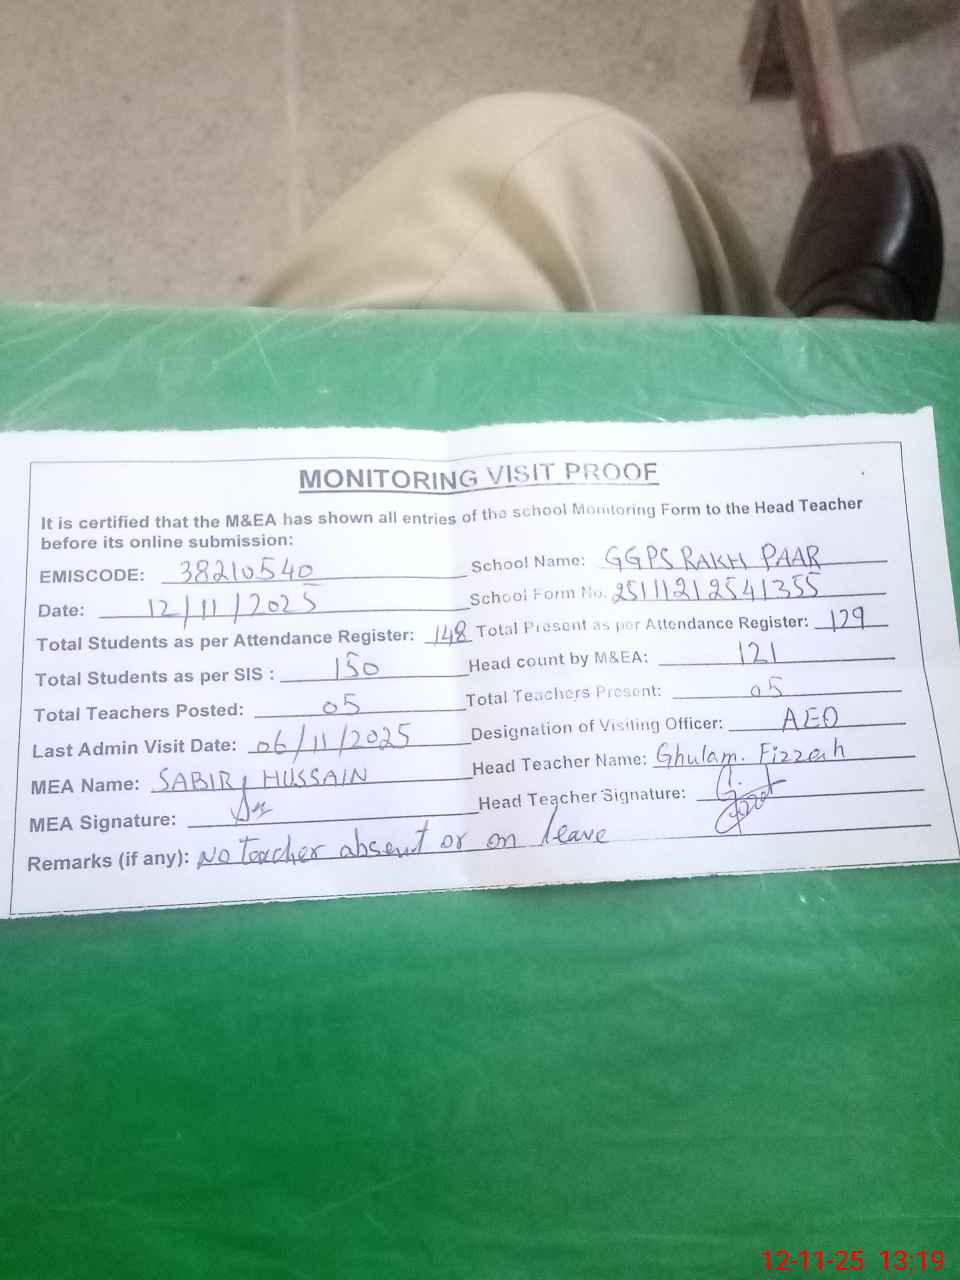 MONITORING VISIT PROOF
It is certified that the M&EA has shown all entries of the school Monitoring Form to the Head Teacher
before its online submission:
EMISCODE: 38210540 School Name: GGPS RAKH PAAR
Date: 12/11/2025 School Form No. 25111212541355
Total Students as per Attendance Register: 148 Total Present as per Attendance Register: 129
Total Students as per SIS : 150 Head count by M&EA: 121
Total Teachers Posted: 05 Total Teachers Present: 05
Last Admin Visit Date: 06/11/2025 Designation of Visiting Officer: AEO
MEA Name: SABIR HUSSAIN Head Teacher Name: Ghulam. Fizzah
MEA Signature: Head Teacher Signature:
Remarks (if any): No teacher absent or on leave
12-11-25 13:19